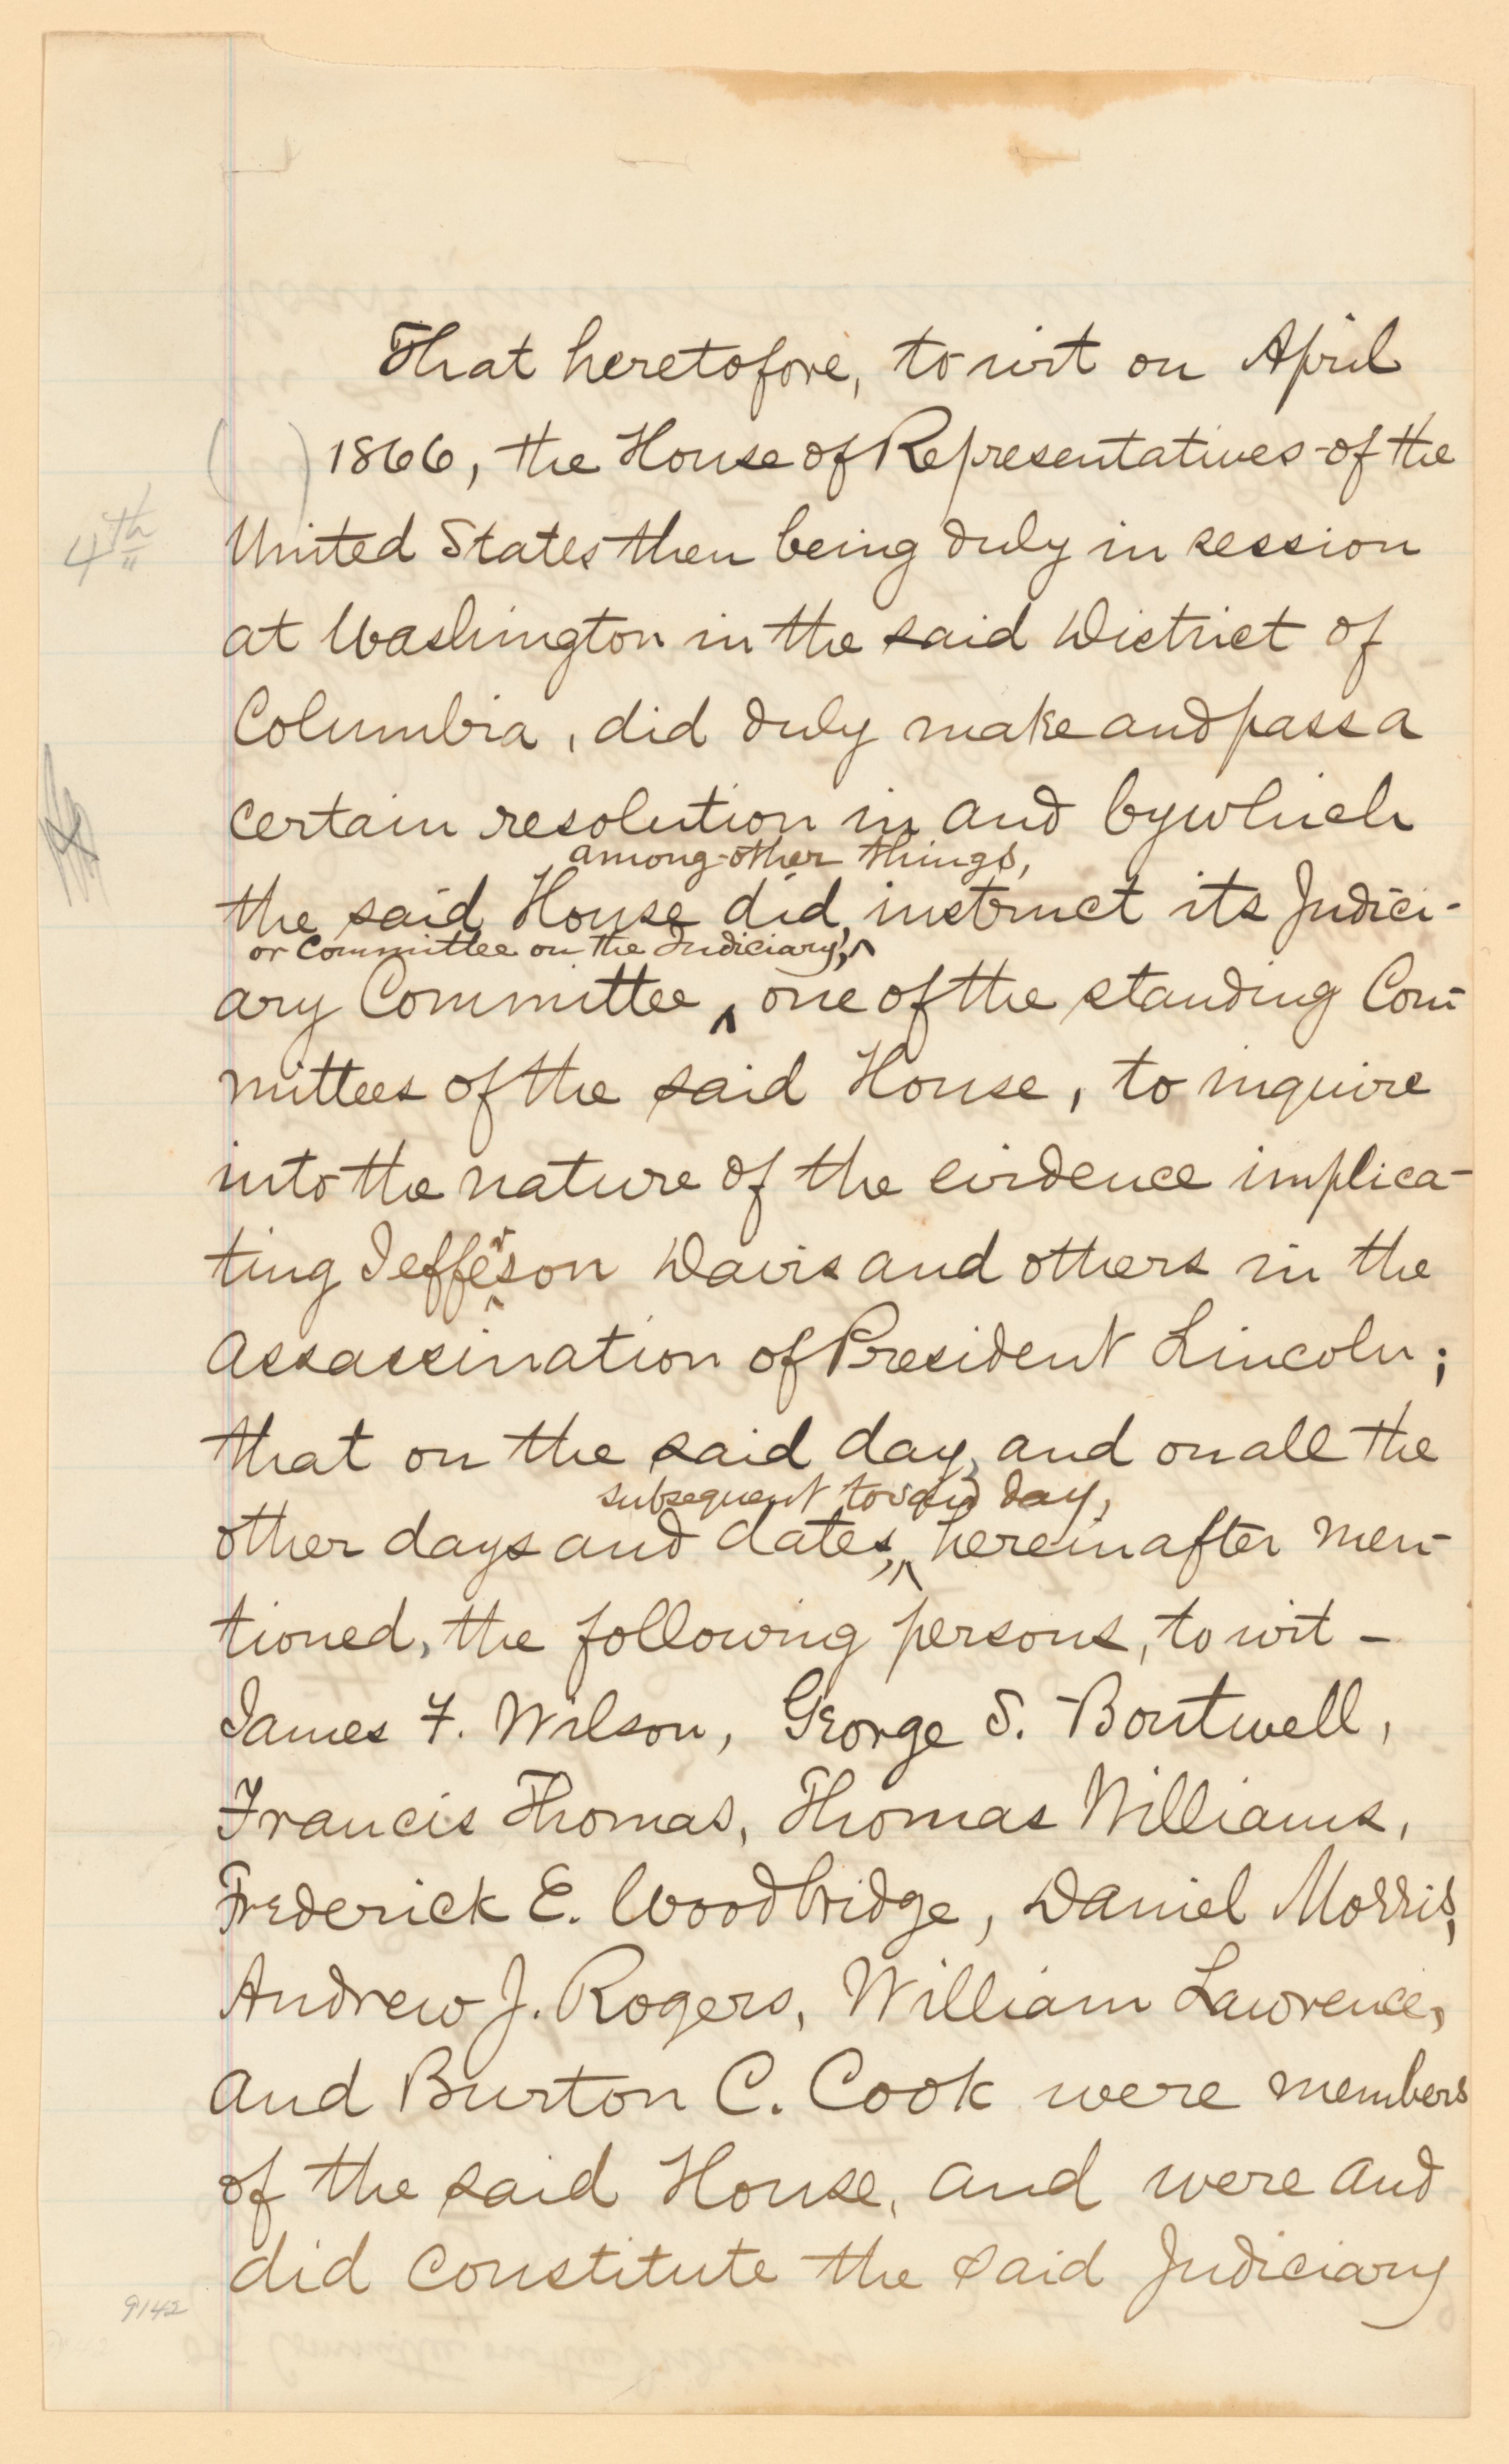 That heretofore, to wit on April
( ) 1866, the House of Representatives of the
4th
United States then being duly in session
at Washington in the said District of
Columbia, did duly make and pass a
certain resolution in and by which
among other things,
the said House did, instruct its Judici-
or Committee on the Judiciary,
ary Committee, one of the standing Com-
mittees of the said House, to inquire
into the nature of the evidence implica-
ting Jefferson Davis and others in the
assassination of President Lincoln;
that on the said day, and on all the
subsequent to said day,
other days and dates, hereinafter men-
tioned, the following persons, to wit -
James F. Wilson, George S. Boutwell,
Francis Thomas, Thomas Williams,
Frederick E. Woodbridge, Daniel Morris,
Andrew J. Rogers, William Lawrence,
and Burton C. Cook were members
of the said House, and were and
did constitute the said Judiciary
9142